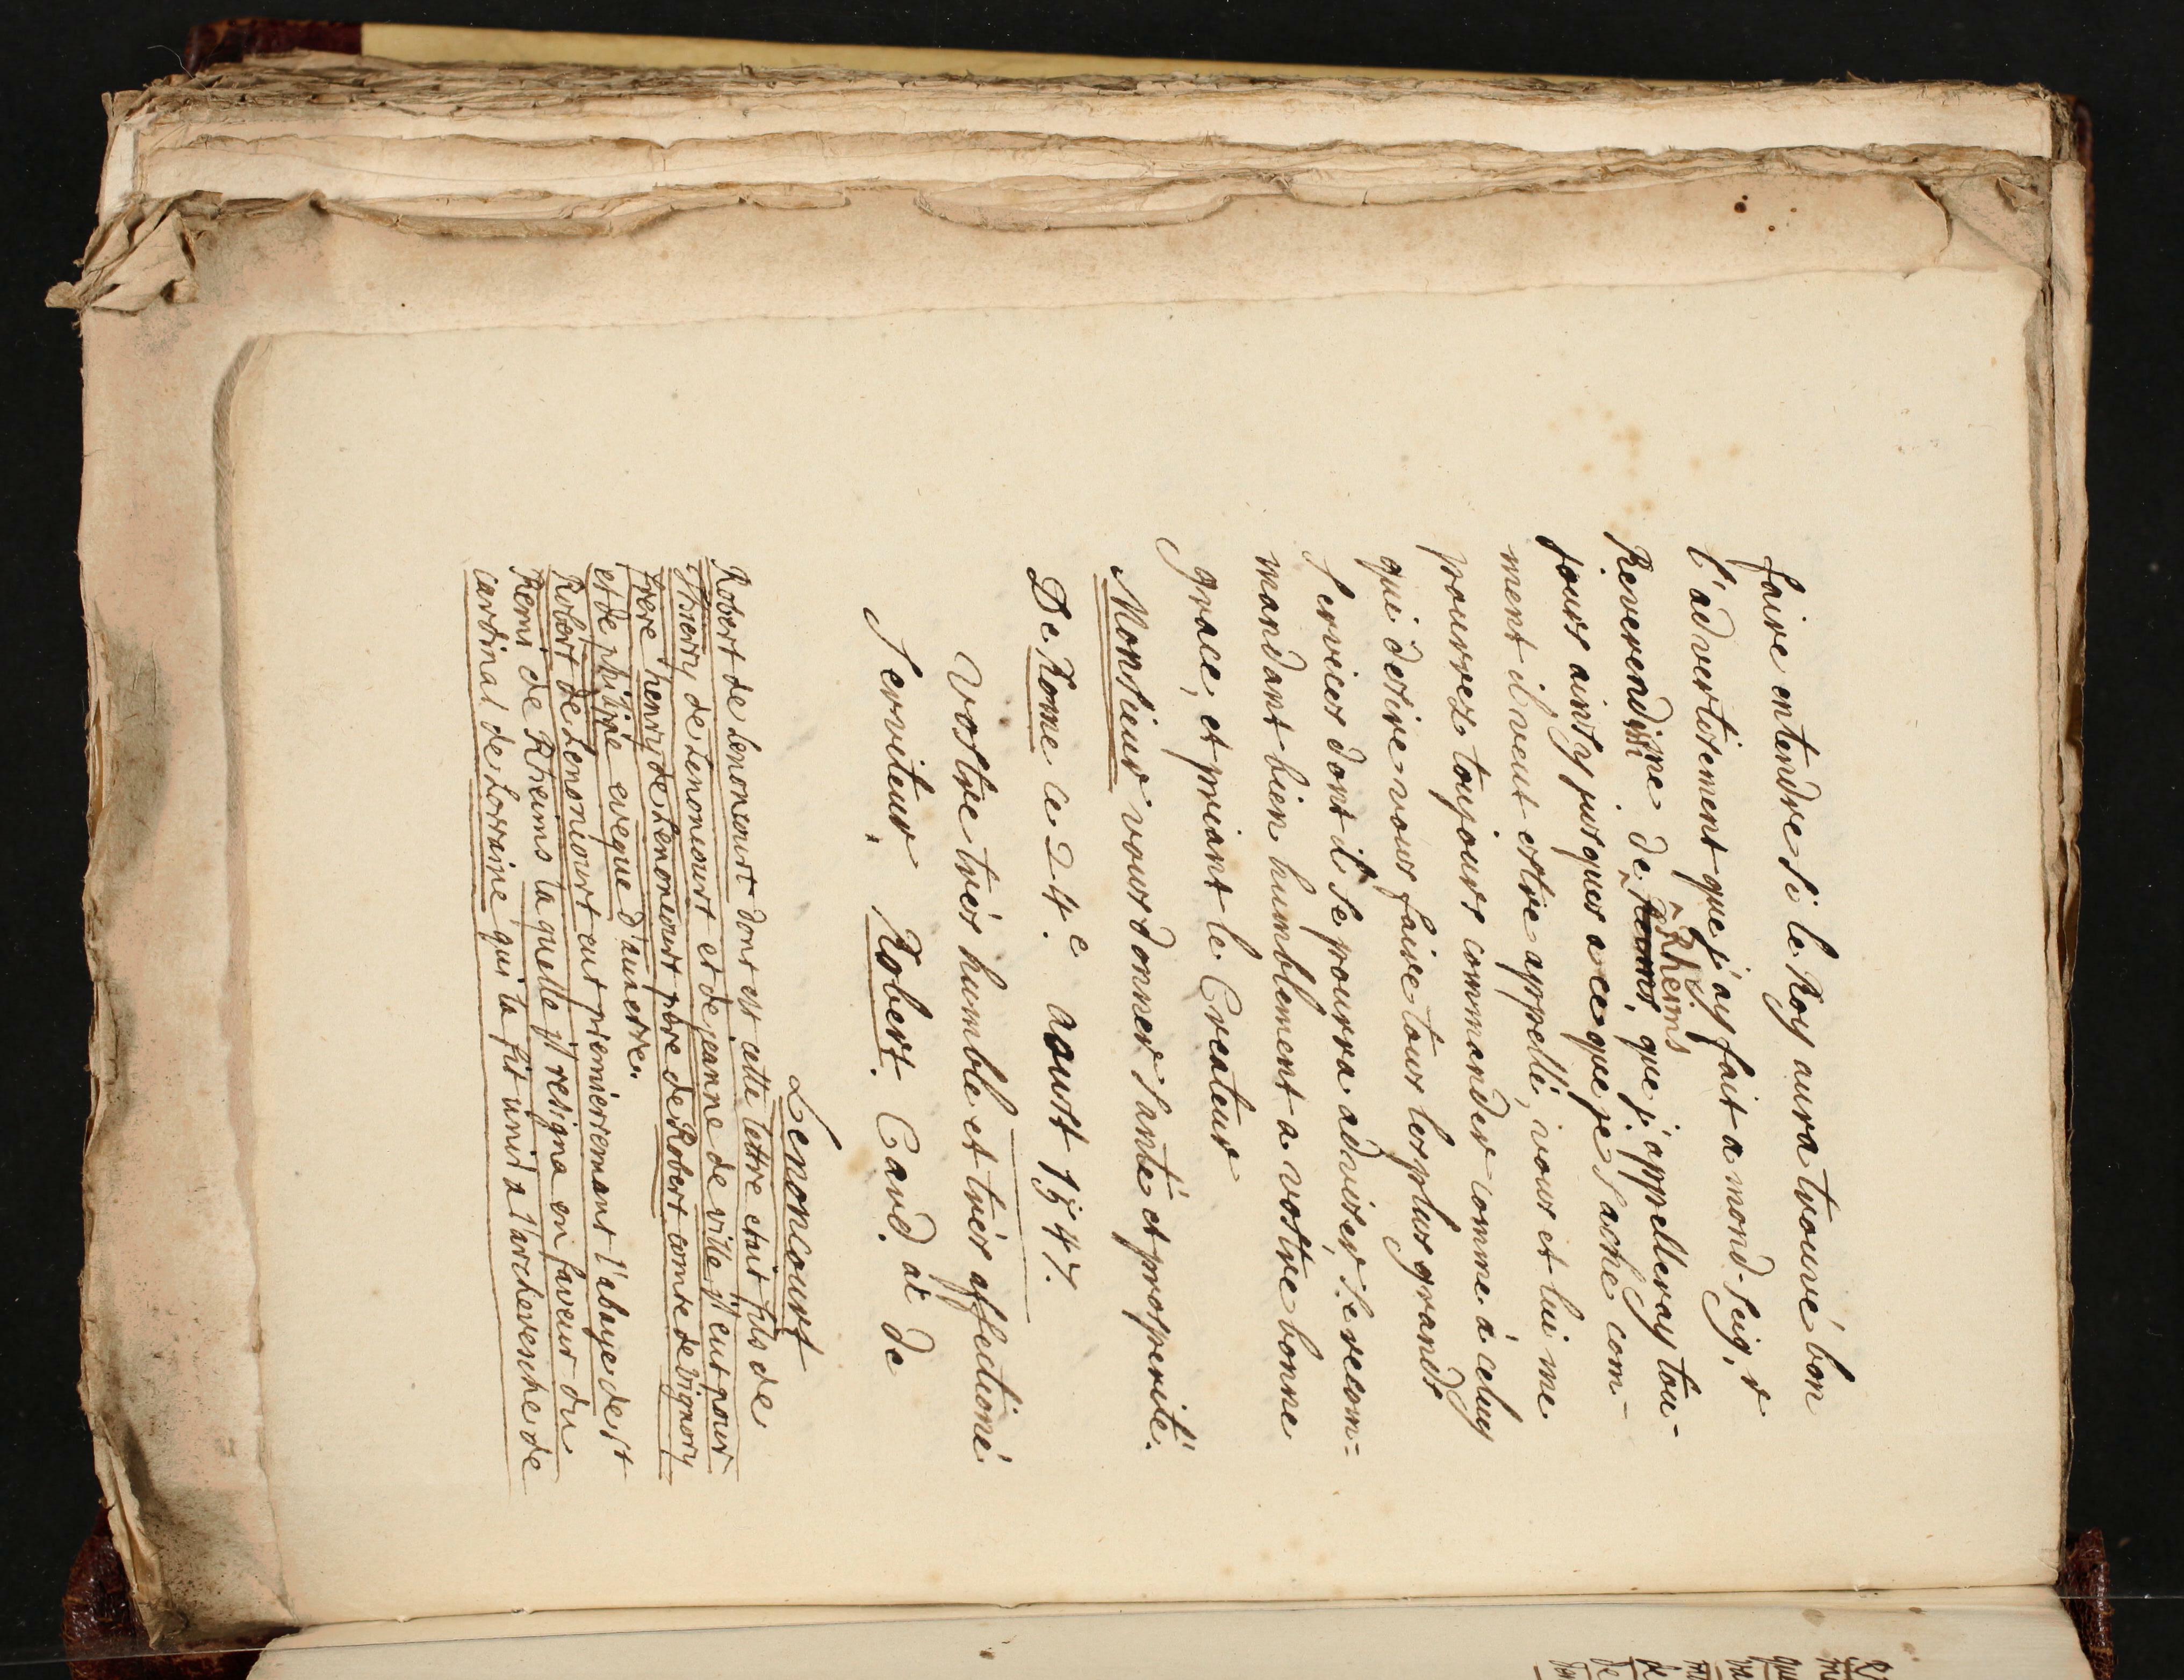 faire entendre si le Roy aura trouvé bon
l'advertisement que j'ay fait a mond. Seig. r
Reverendme de Rheims que j'appelleray tou-
jours ainsy jusques a ce que je sache com-
ment il veut estre appellé, vous et lui me
pourrez toujours commander comme à celuy
qui desire vous faire tous les plus grands
Services dont il Se pourra adviser, Se recom=
mandant bien humblement a vostre bonne
grace, et priant le Createur
Monsieur vous donner Santé et prosperité.
De Rome ce 24.e aoust 1547.
Vostre trés humble et trés affectioné
Serviteur. Robert. Card. al de
Lenoncourt
Robert de Lenoncourt dont est cette lettre etait fils de
thierry de Lenoncourt et de jeanne de ville jl eut pour
frere henry de Lenoncourt pere de Robert comte de vignory
et de philipe eveque d'auxerre.
Robert de Lenoncourt eut piemierremant l'abaye de st
Remi de Rheims laquelle jl resigna en faveur du
cardinal de Lorraine qui la fit unir a l'archevesche de